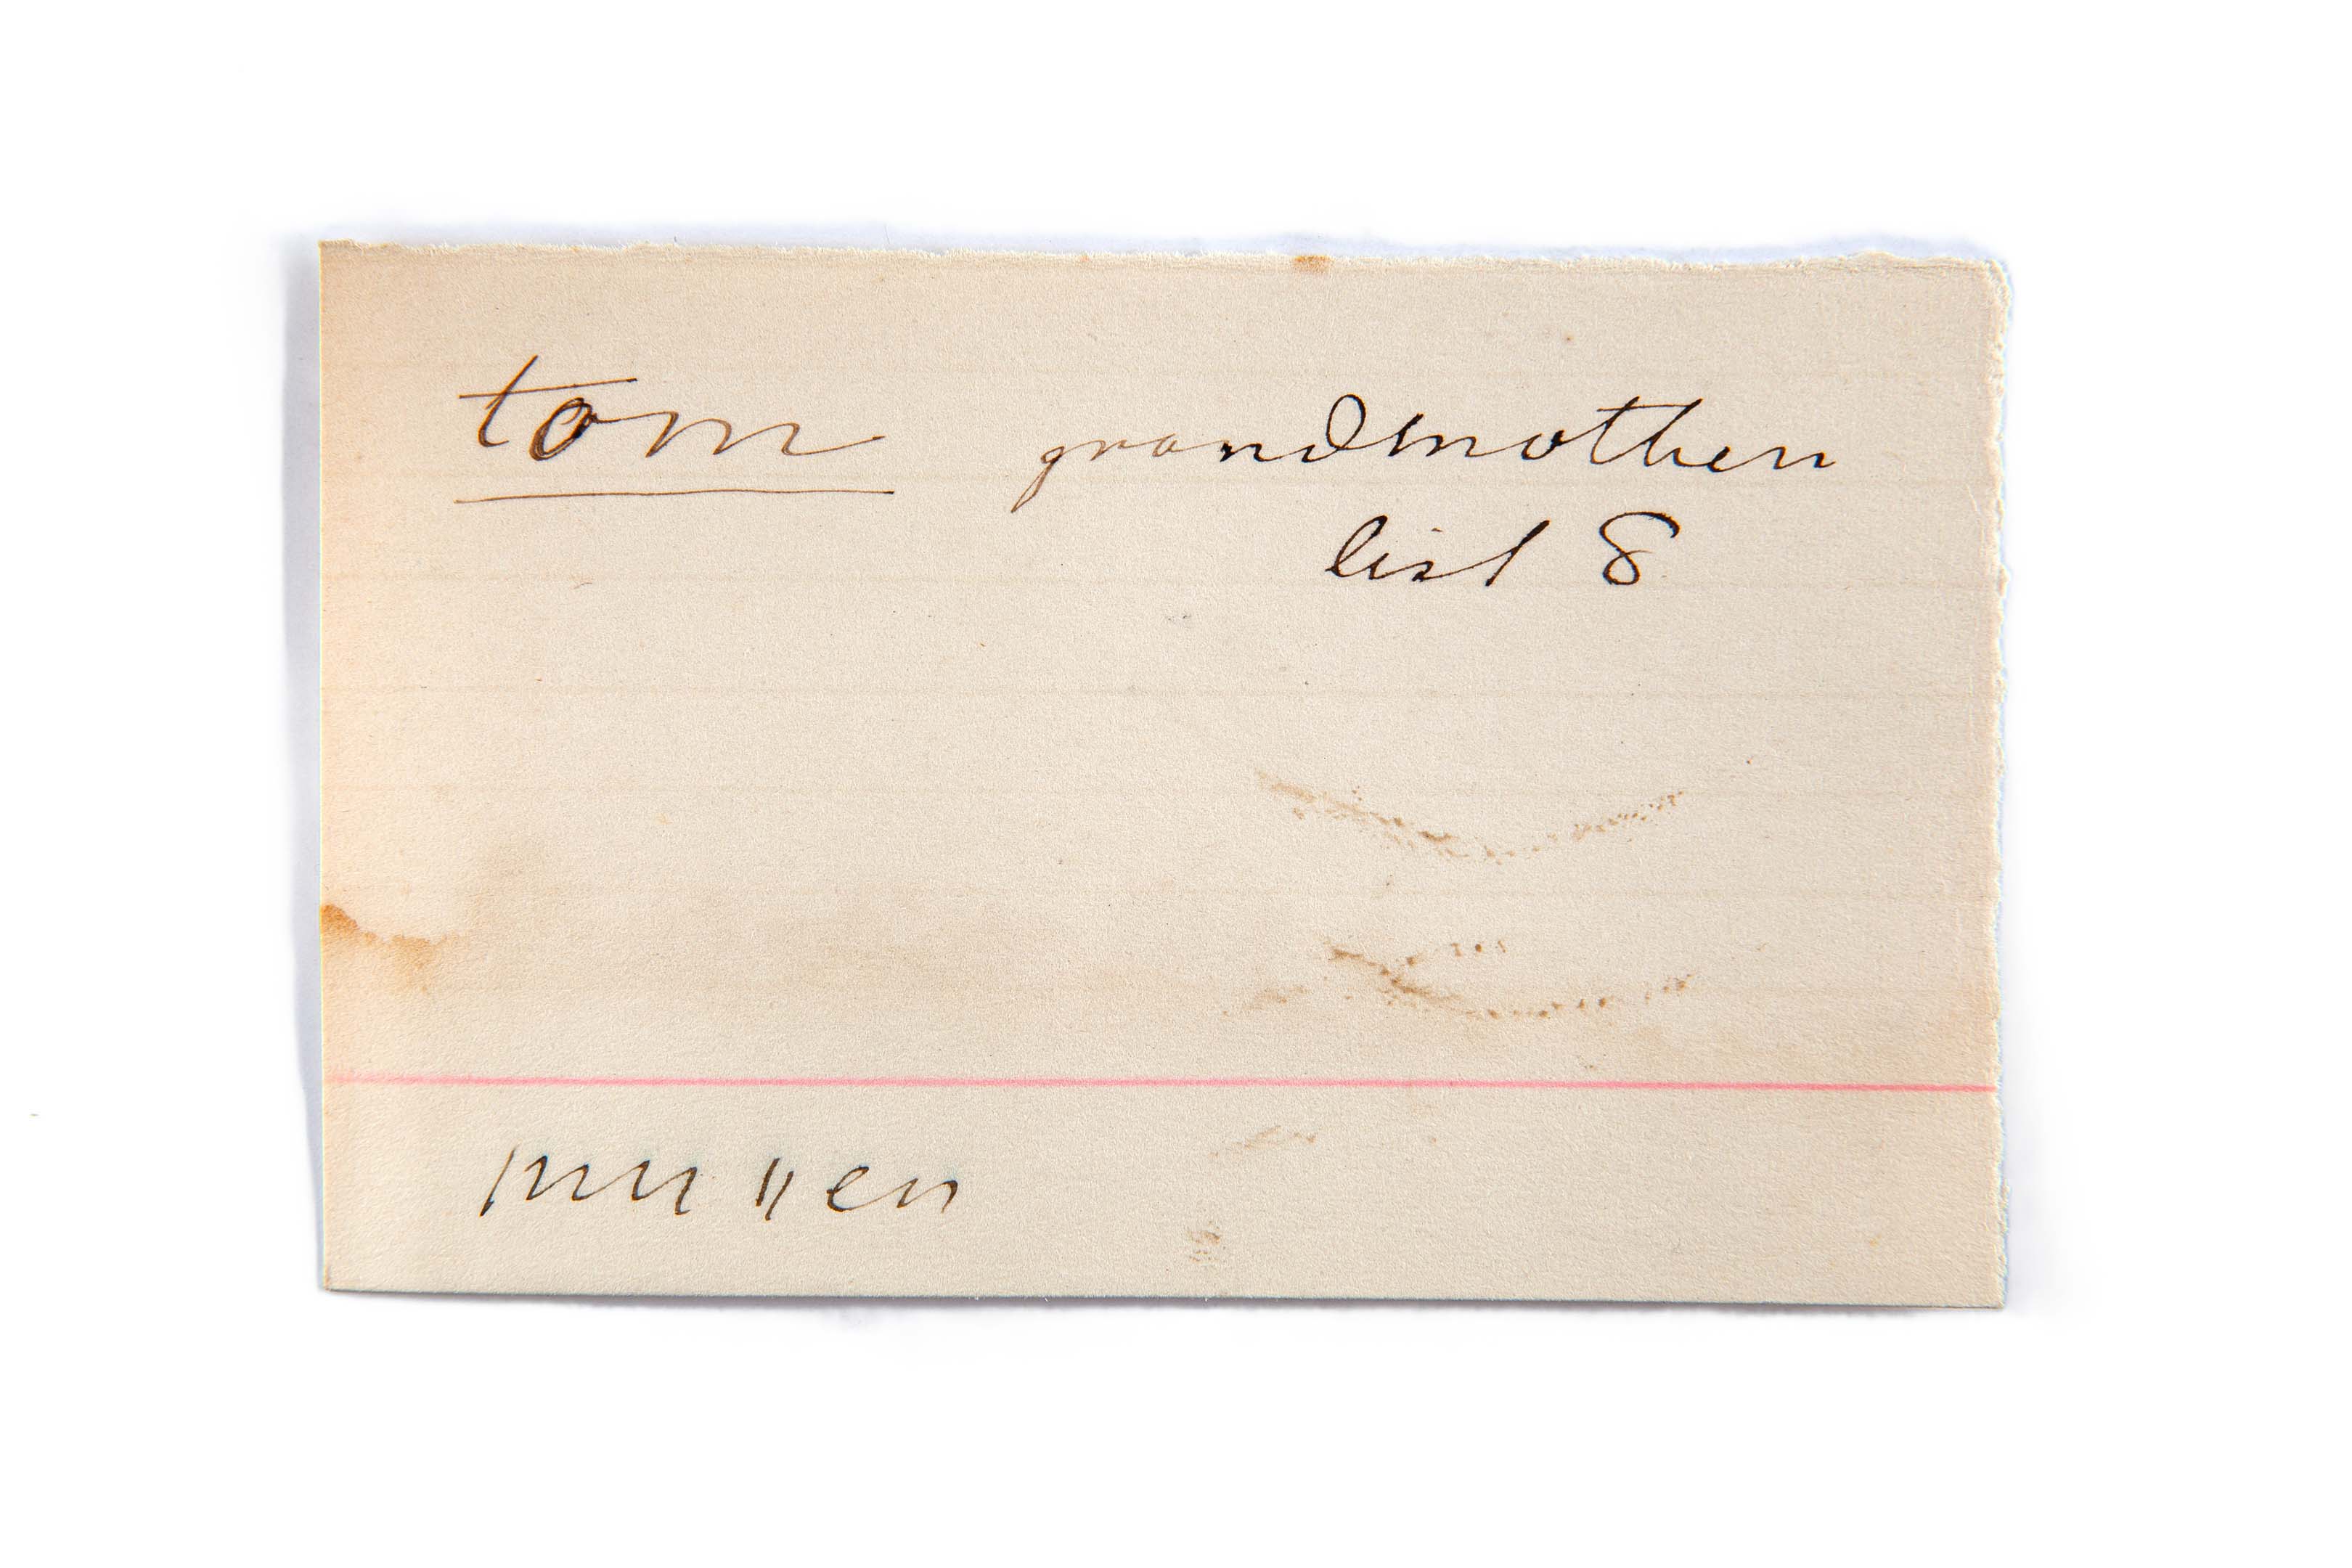 tom grandmother
list 8